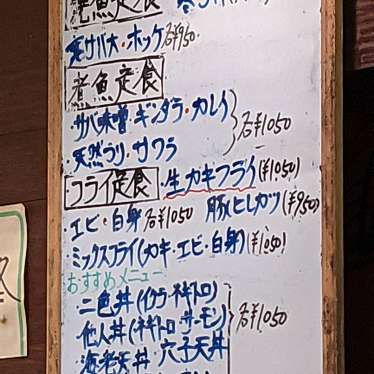 焼魚定食
文サバ・ホッケ 各¥950
煮魚定食
・サバ味噌・ギンダラ・カレイ
・天然ぶり・サワラ 各¥1050
フライ定食 ・生カキフライ(¥1050)
・エビ・白身 各¥1050 豚ヒレカツ(¥950)
・ミックスフライ(カキ・エビ・白身)(¥1050)
おすすめメニュー
・二色丼(イクラ・ネギトロ)
・他人丼(ネギトロ・サーモン) 各¥1,050
・海老天丼・穴子天丼